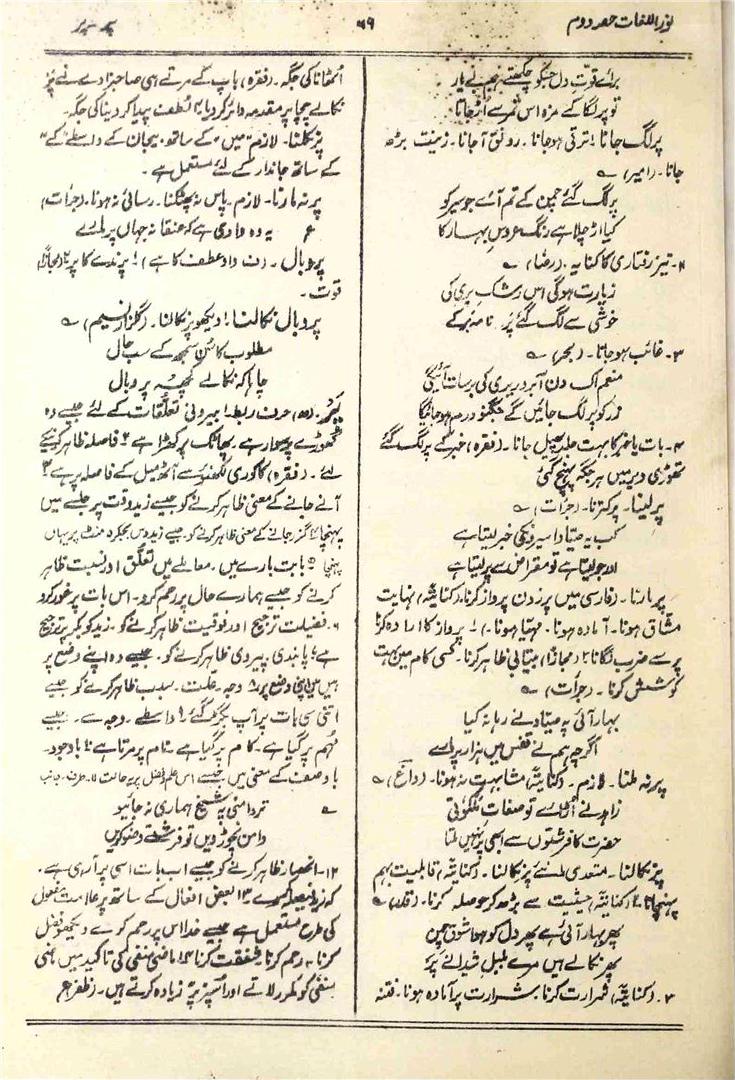 نور اللغات حصہ دوم
۶۹
پر
برائے قوتِ دل جبکو چکھتے ہم نے یار
تو پر لگا کے مزہ اس ثمر سے اُڑ جاتا
پر لگ جانا ۱ ترقی ہوجانا۔ رونق آجانا۔ زینت بڑھ
جانا۔ (امیر) ؎
پر لگ گئے چمن کے تم آئے جو سیر کو
کیا اڑ چلا ہے رنگ عروسِ بہار کا
۲۔ تیز رفتاری کا کنایہ۔ (رضا) ؎
زیارت ہوگی اس رشکِ پری کی
خوشی سے لگ گئے پَر نامہ بر کے
۳۔ غائب ہوجانا۔ (بحر) ؎
منعم اک دن آبرو ریزی کی برسات آئیگی
زر کو پر لگ جائیں گے جگنو درم ہوجائیگا
۴۔ بات یا خبر کا بہت جلد پھیل جانا۔ (فقرہ) خبر کے پر لگ گئے
تھوڑی دیر میں ہر جگہ پہنچ گئی
پر لینا۔ پر کترنا۔ (جرات) ؎
کب یہ صیاد اسیروں کی خبر لیتا ہے
اور جو لیتا ہے تو مقراض سے پر لیتا ہے
پر مارنا۔ (فارسی میں پر زدن پرواز کرنا، کنایتہً نہایت
مشاق ہونا۔ آمادہ ہونا۔ مہیا ہونا۔) ۱ پرواز کا ارادہ کرنا
پر سے ضرب لگانا ۲ (مجازاً) بیتابی ظاہر کرنا۔ کسی کام میں بہت
کوشش کرنا۔ (جرأت) ؎
بہار آئی پہ صیاد نے رہا نہ کیا
اگرچہ ہم نے قفس میں ہزار پر مارے
پر نہ ملنا۔ لازم۔ (کنایتہً) مشابہت نہ ہونا۔ (داغ) ؎
زاہد نے اُڑائے تو صفاتِ ملکوتی
حضرت کا فرشتوں سے ابھی پر نہیں ملتا
پر نکالنا۔ متعدی ۱ نئے پر نکالنا۔ (کنایتہً) قابلیت بہم
پہنچانا ۲ (کنایتہً) حیثیت سے بڑھ کر حوصلہ کرنا۔ (قلق) ؎
پھر بہار آئی ہے پھر دل کو ہوا شوقِ چمن
پھر نکالے ہیں مرے بلبل شیدا نے پر
۳۔ (کنایتہً) شرارت کرنا۔ شرارت پر آمادہ ہونا۔ فتنہ
اُٹھانا کی جگہ۔ (فقرہ) باپ کے مرتے ہی صاحبزادے نے پر
نکالے چچا پر مقدمہ دائر کر دیا ۴ لُطف پیدا کر دینا کی جگہ۔
پر نکلنا۔ لازم "میں" کے ساتھ۔ بیجان کے واسطے "کے"
کے ساتھ جاندار کے لئے مستعمل ہے۔
پر نہ مارنا۔ لازم۔ پاس نہ پھٹکنا۔ رسائی نہ ہونا۔ (جرأت)
ع یہ وہ وادی ہے کہ عنقا نہ جہاں پر مارے
پر و بال۔ (ف واو عطف کا ہے) ۱ پرندے کا پر ۲ (مجازاً)
قوت۔
پر و بال نکالنا۔ ۱ دیکھو پر نکالنا۔ (گلزار نسیم) ؎
مطلوب کا سُن سمجھ کے سب حال
چاہا کہ نکالے کچھ پر و بال
پَر۔ (ھ) حرف ربط ۱ بیرونی تعلقات کے لئے جیسے وہ
گھوڑے پر سوار ہے۔ پھاٹک پر کھڑا ہے ۲ فاصلہ ظاہر کرنیکے
لئے۔ (فقرہ) کاکوری لکھنؤ سے آٹھ میل کے فاصلہ پر ہے ۳
آنے جانے کے معنی ظاہر کرنے کو جیسے زید وقت پر جلسے میں
پہنچا ۴ گزر جانے کے معنی ظاہر کرنے کو۔ جیسے زید دس بجکر ۵ منٹ پر یہاں
پہنچا ۵ بابت بارے میں۔ معاملے میں تعلق اور نسبت ظاہر
کرنے کو جیسے ہمارے حال پر رحم کرو۔ اس بات پر غور کرو
۶۔ فضیلت ترجیح اور فوقیت ظاہر کرنے کو۔ زید کو بکر پر ترجیح
ہے ۷ پابندی پیروی ظاہر کرنے کو۔ جیسے وہ اپنے وضع پر
ہیں میں اپنی وضع پر ۸ وجہ۔ علت۔ سبب ظاہر کرنے کو جیسے
اتنی سی بات پر آپ بگڑ گئے ۹ واسطے۔ وجہ سے۔ جیسے
مُہم پر گیا ہے۔ کام پر گیا ہے۔ نام پر مرتا ہے ۱۰ باوجود۔
باوصف کے معنی میں۔ جیسے اس علم و فضل پر یہ حالت ۱۱۔ طرف۔ جانب
؎ تر دامنی پہ شیخ ہماری نہ جائیو
دامن نچوڑ دیں تو فرشتے وضو کریں
۱۲۔ انحصار ظاہر کرنے کو جیسے اب بات اسی پر آ رہی ہے۔
کہ زید فیصلہ کرے ۱۳ بعض افعال کے ساتھ پر علامت مفعول
کی طرح مستعمل ہے جیسے خدا اس پر رحم کرے دیکھو فضل
کرنا۔ رحم کرنا۔ شفقت کرنا ۱۴ ماضی منفی کی تاکید میں ماضی
منفی کو مکرر لاتے اور اُسپر پر زیادہ کرتے ہیں۔ (ظفر) ع